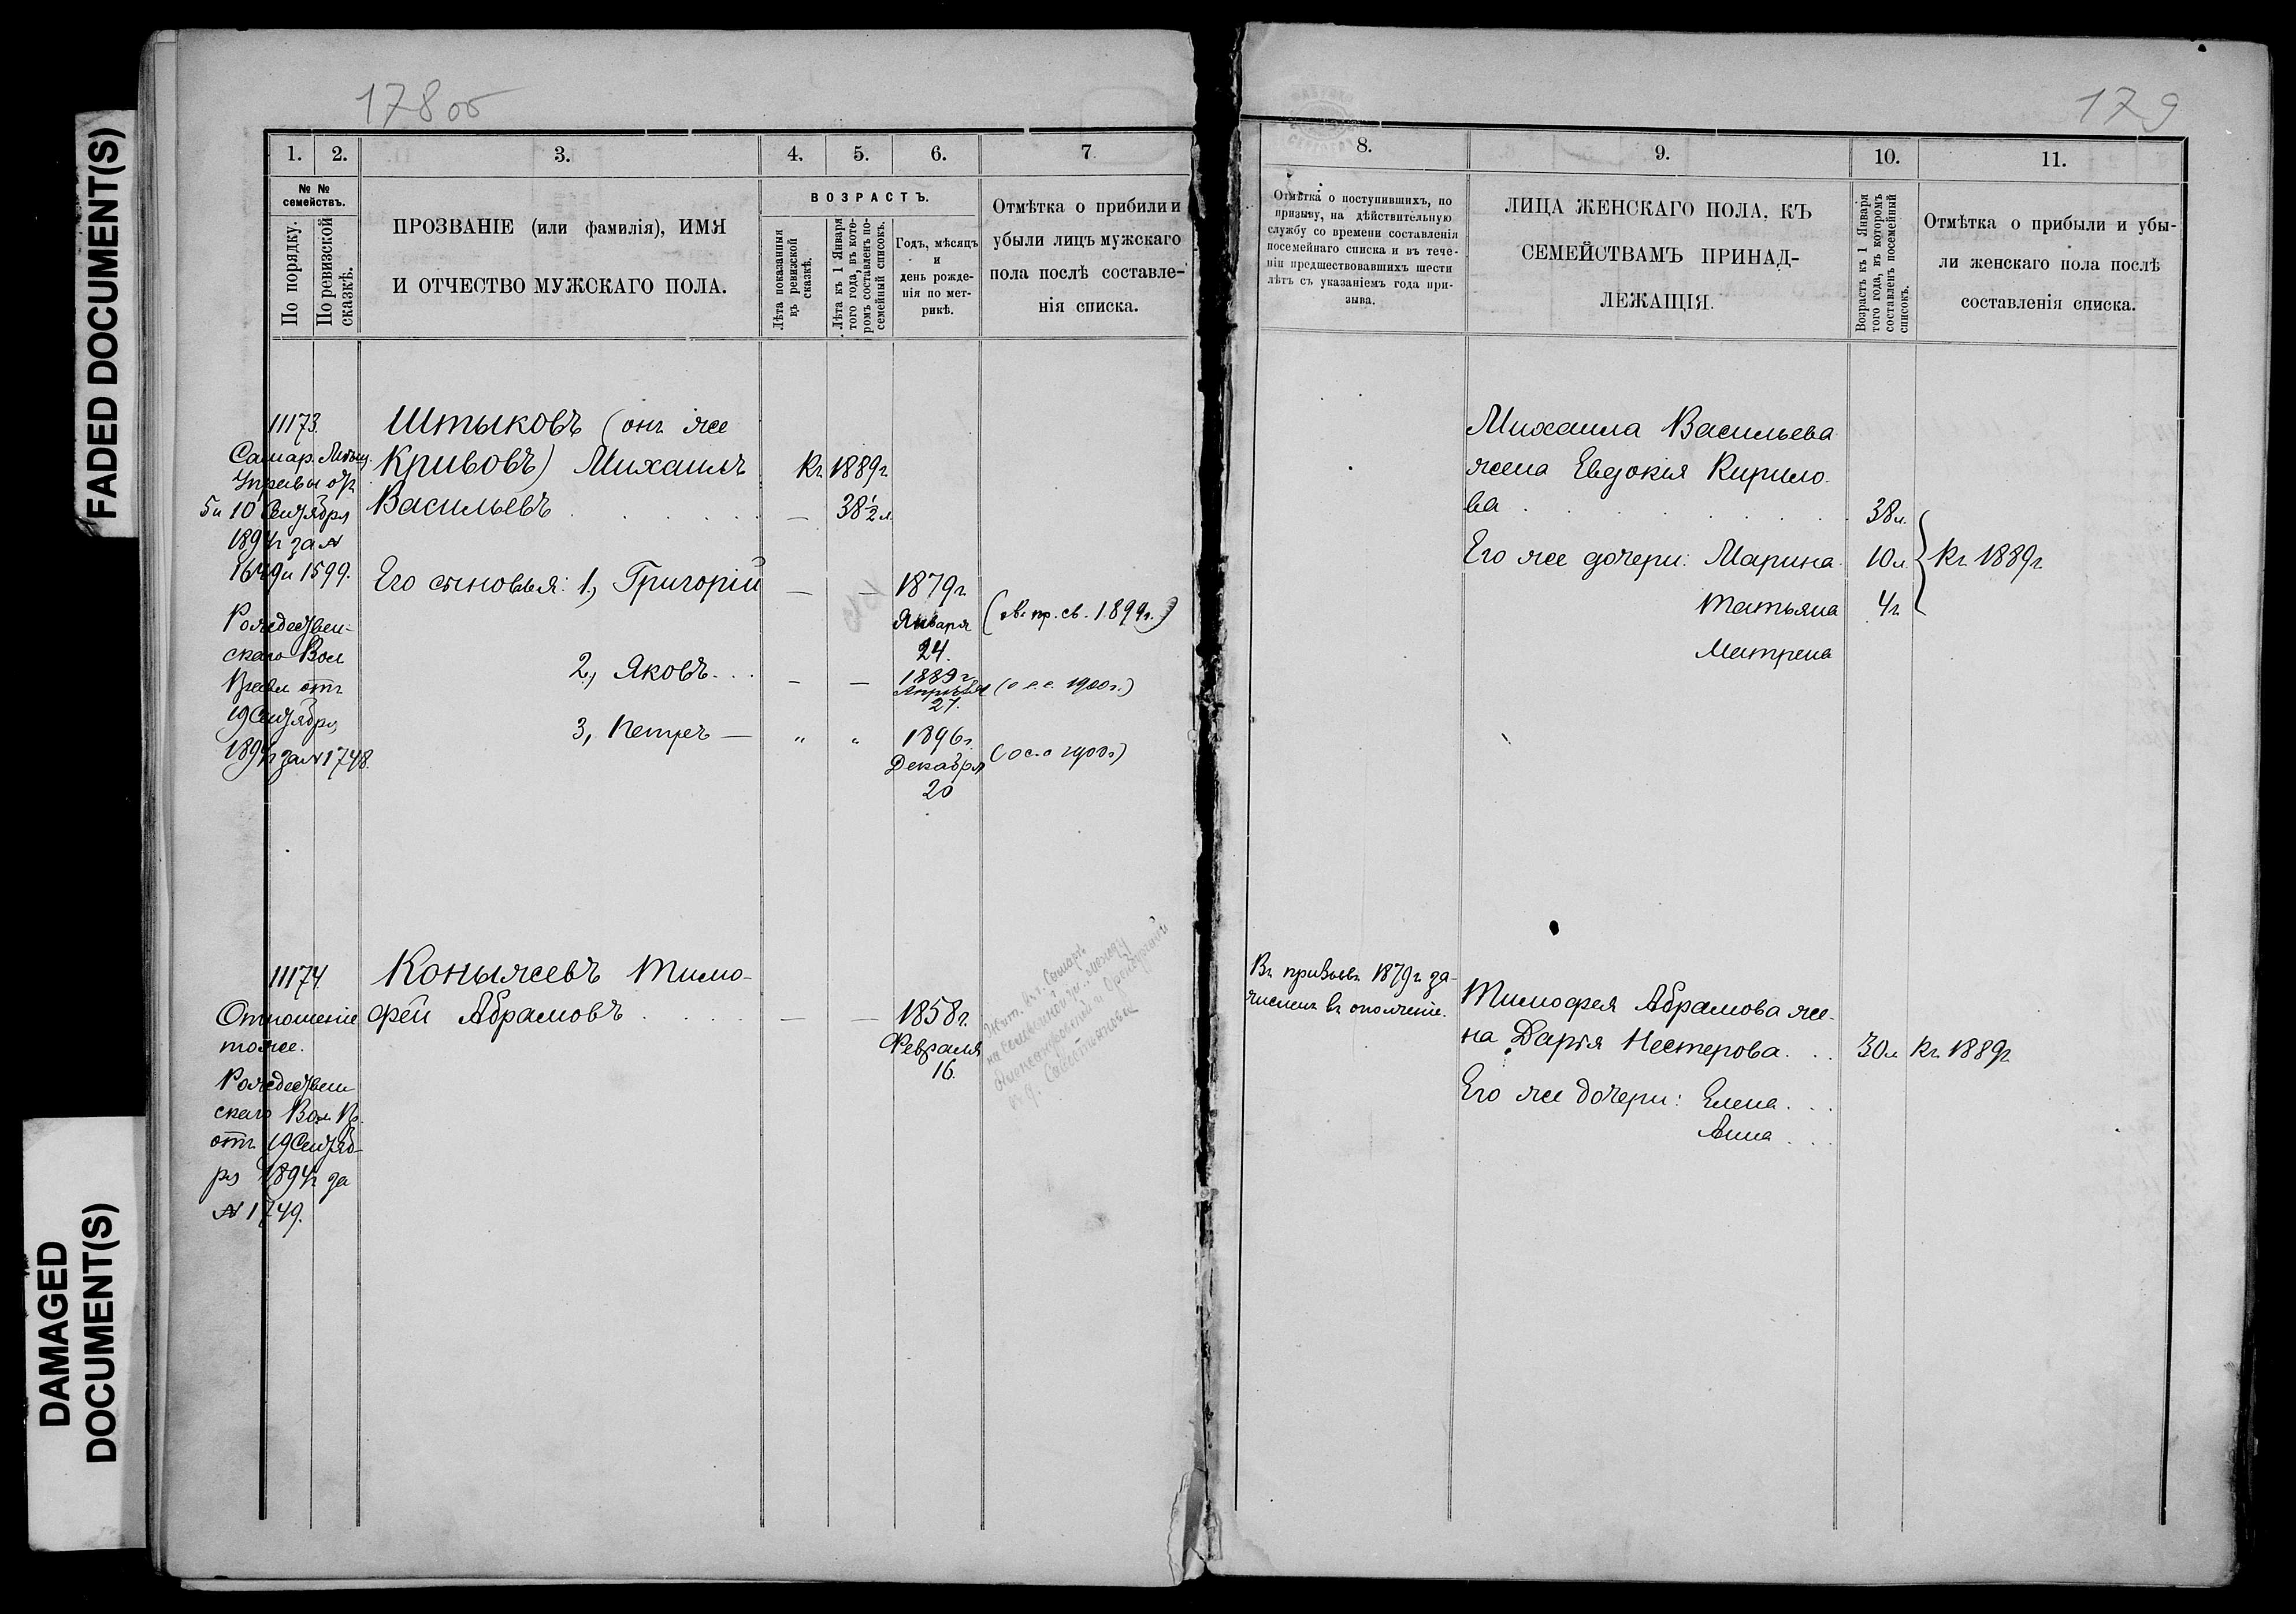 FADED DOCUMENT(S)
DAMAGED
DOCUMENT(S)
178 об
1.
2.
3.
4.
5.
6.
7
№ №
семействъ.
По порядку.
По ревизской
сказкѣ.
ПРОЗВАНІЕ (или фамилія), ИМЯ
И ОТЧЕСТВО МУЖСКАГО ПОЛА.
ВОЗРАСТЪ.
Лѣта показанныя
въ ревизской
сказкѣ.
Лѣта къ 1 Января
того года, въ кото-
ромъ составленъ по-
семейный списокъ.
Годъ, мѣсяцъ
и
день рожде-
нія по мет-
рикѣ.
Отмѣтка о прибыли и
убыли лицъ мужскаго
пола послѣ составле-
нія списка.
11173.
Самар. Мѣщ.
Управы отъ
5 и 10 Сентября
1894г за №
1649 и 1599.
Рождествен-
скаго Вол
Правл отъ
19 Сентября
1894г за № 1748.
Штыковъ (онъ же
Кривовъ) Михаилъ
Васильевъ
Къ 1889г.
— 38½ л.
Его сыновья: 1, Григорій — —
1879г.
Января
24.
2, Яковъ — —
1889г.
Апрѣля
27.
(о с. с. 1900г.)
3, Петръ — " "
1896г.
Декабря
20
11174.
Отношеніе
тоже.
Рождествен
скаго Вол. Пр.
отъ 19 Сентяб-
ря 1894г за
№ 1749.
Коныжевъ Тимо-
фей Абрамовъ — —
1858г.
Февраля
16.
179
8.
9.
10.
11.
Отмѣтка о поступившихъ, по
призыву, на дѣйствительную
службу со времени составленія
посемейнаго списка и въ тече-
ніи предшествовавшихъ шести
лѣтъ съ указаніемъ года при-
зыва.
ЛИЦА ЖЕНСКАГО ПОЛА, КЪ
СЕМЕЙСТВАМЪ ПРИНАД-
ЛЕЖАЩІЯ.
Возрастъ къ 1 Января
того года, въ которомъ
составленъ посемейный
списокъ.
Отмѣтка о прибыли и убы-
ли женскаго пола послѣ
составленія списка.
Михаила Васильева
жена Евдокія Кирило-
ва 38л.
Его же дочери: Марина 10л. Къ 1889г.
Татьяна 4г.
Матрена
Въ призывъ 1879г за-
численъ въ ополченіе.
Тимофея Абрамова же-
на Дарья Нестерова 30л Къ 1889г.
Его же дочери: Елена
Анна